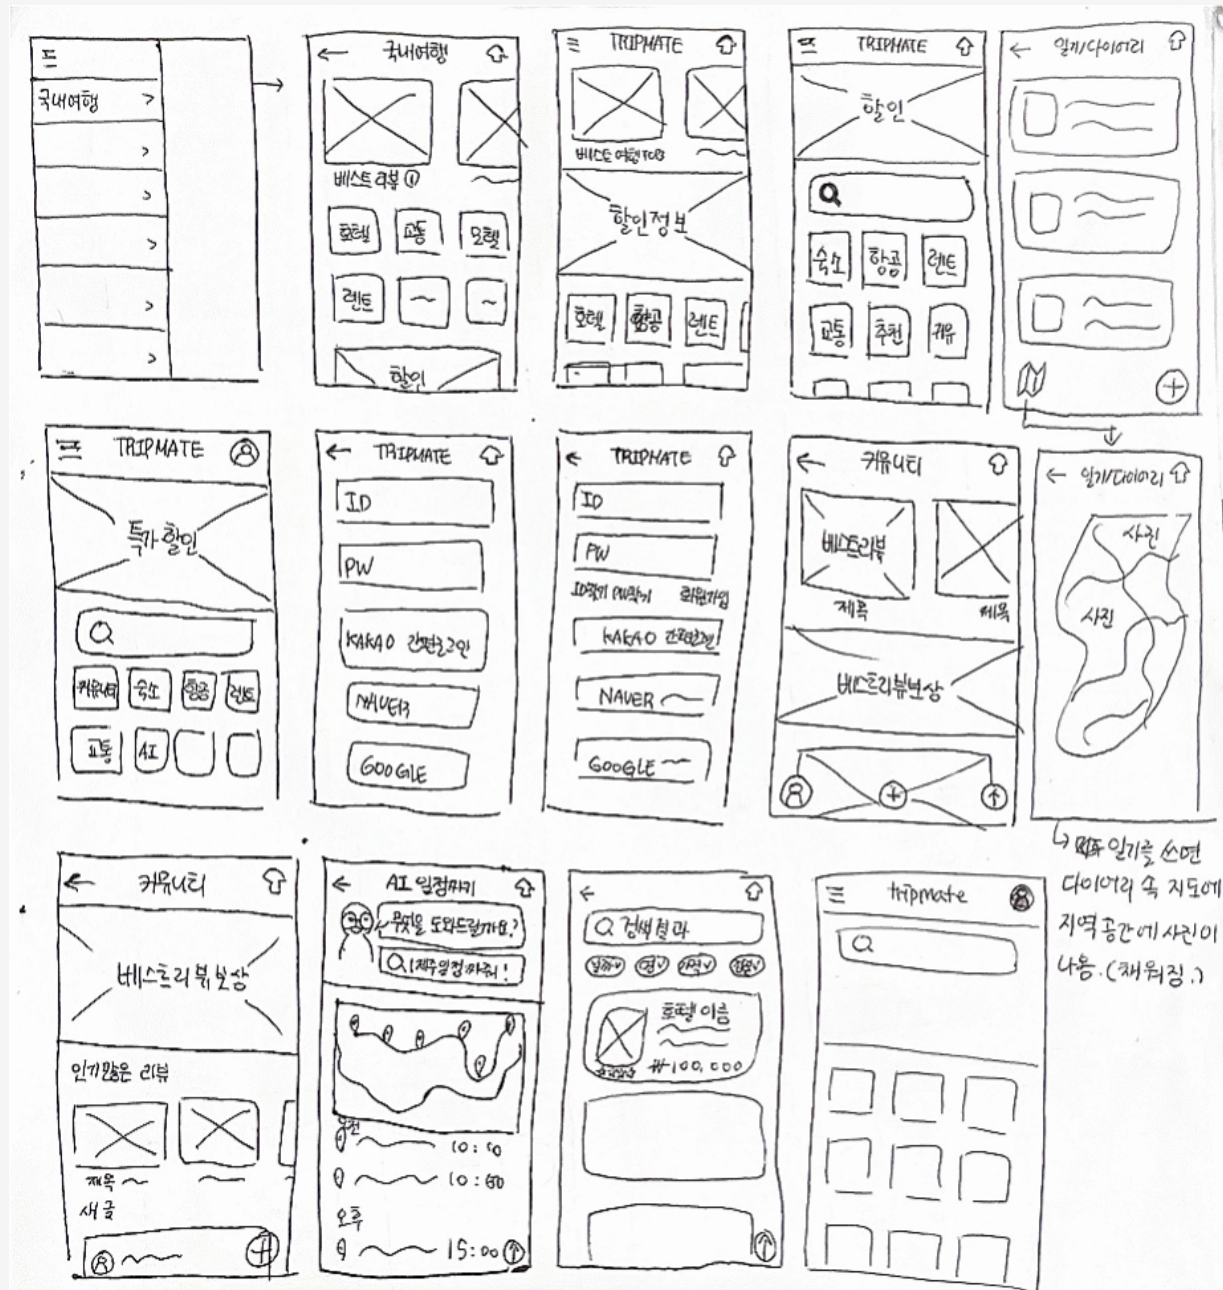 국내여행
국내여행
베스트 리뷰 ①
호텔
교통
모텔
렌트
할인
TRIPMATE
베스트 여행 TOP
할인정보
호텔
항공
렌트
TRIPMATE
할인
숙소
항공
렌트
교통
추천
일기/다이어리
TRIPMATE
특가 할인
커뮤니티
숙소
항공
렌트
교통
AI
TRIPMATE
ID
PW
KAKAO 간편로그인
NAVER
GOOGLE
TRIPMATE
ID
PW
ID찾기 PW찾기 회원가입
KAKAO 간편로그인
NAVER
GOOGLE
커뮤니티
베스트리뷰
제목
제목
베스트리뷰보상
일기/다이어리
사진
사진
일기를 쓰면
다이어리 속 지도에
지역 공간에 사진이
나옴. (채워짐.)
커뮤니티
베스트리뷰보상
인기많은 리뷰
제목
새글
AI 일정짜기
무엇을 도와드릴까요?
제주일정 짜줘!
오전
10:10
10:60
오후
15:00
검색결과
호텔 이름
₩100,000
tripmate